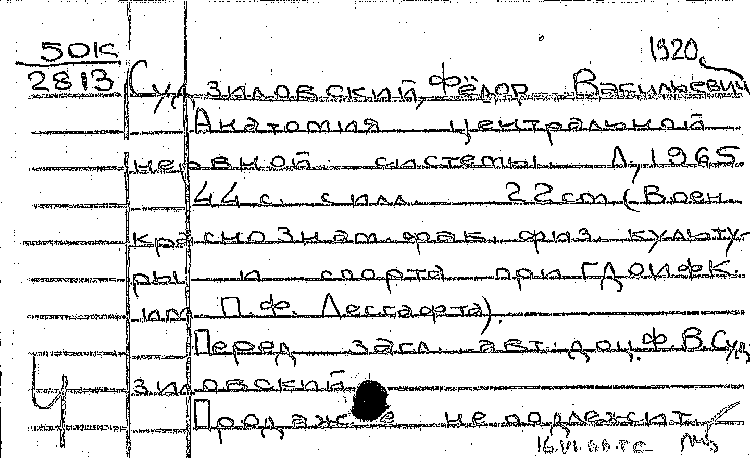 50К
2813
1920
Судзиловский, Фёдор Васильевич
Анатомия центральной
нервной системы. Л, 1965
44 с. с илл. 22 cm (Воен.
краснознам. фак. физ. культу-
ры и спорта при ГДОИФК
им П.Ф. Лесгафта).
Перед загл. авт: доц. Ф.В. Суд
зиловский
Ч
Продаже не подлежит